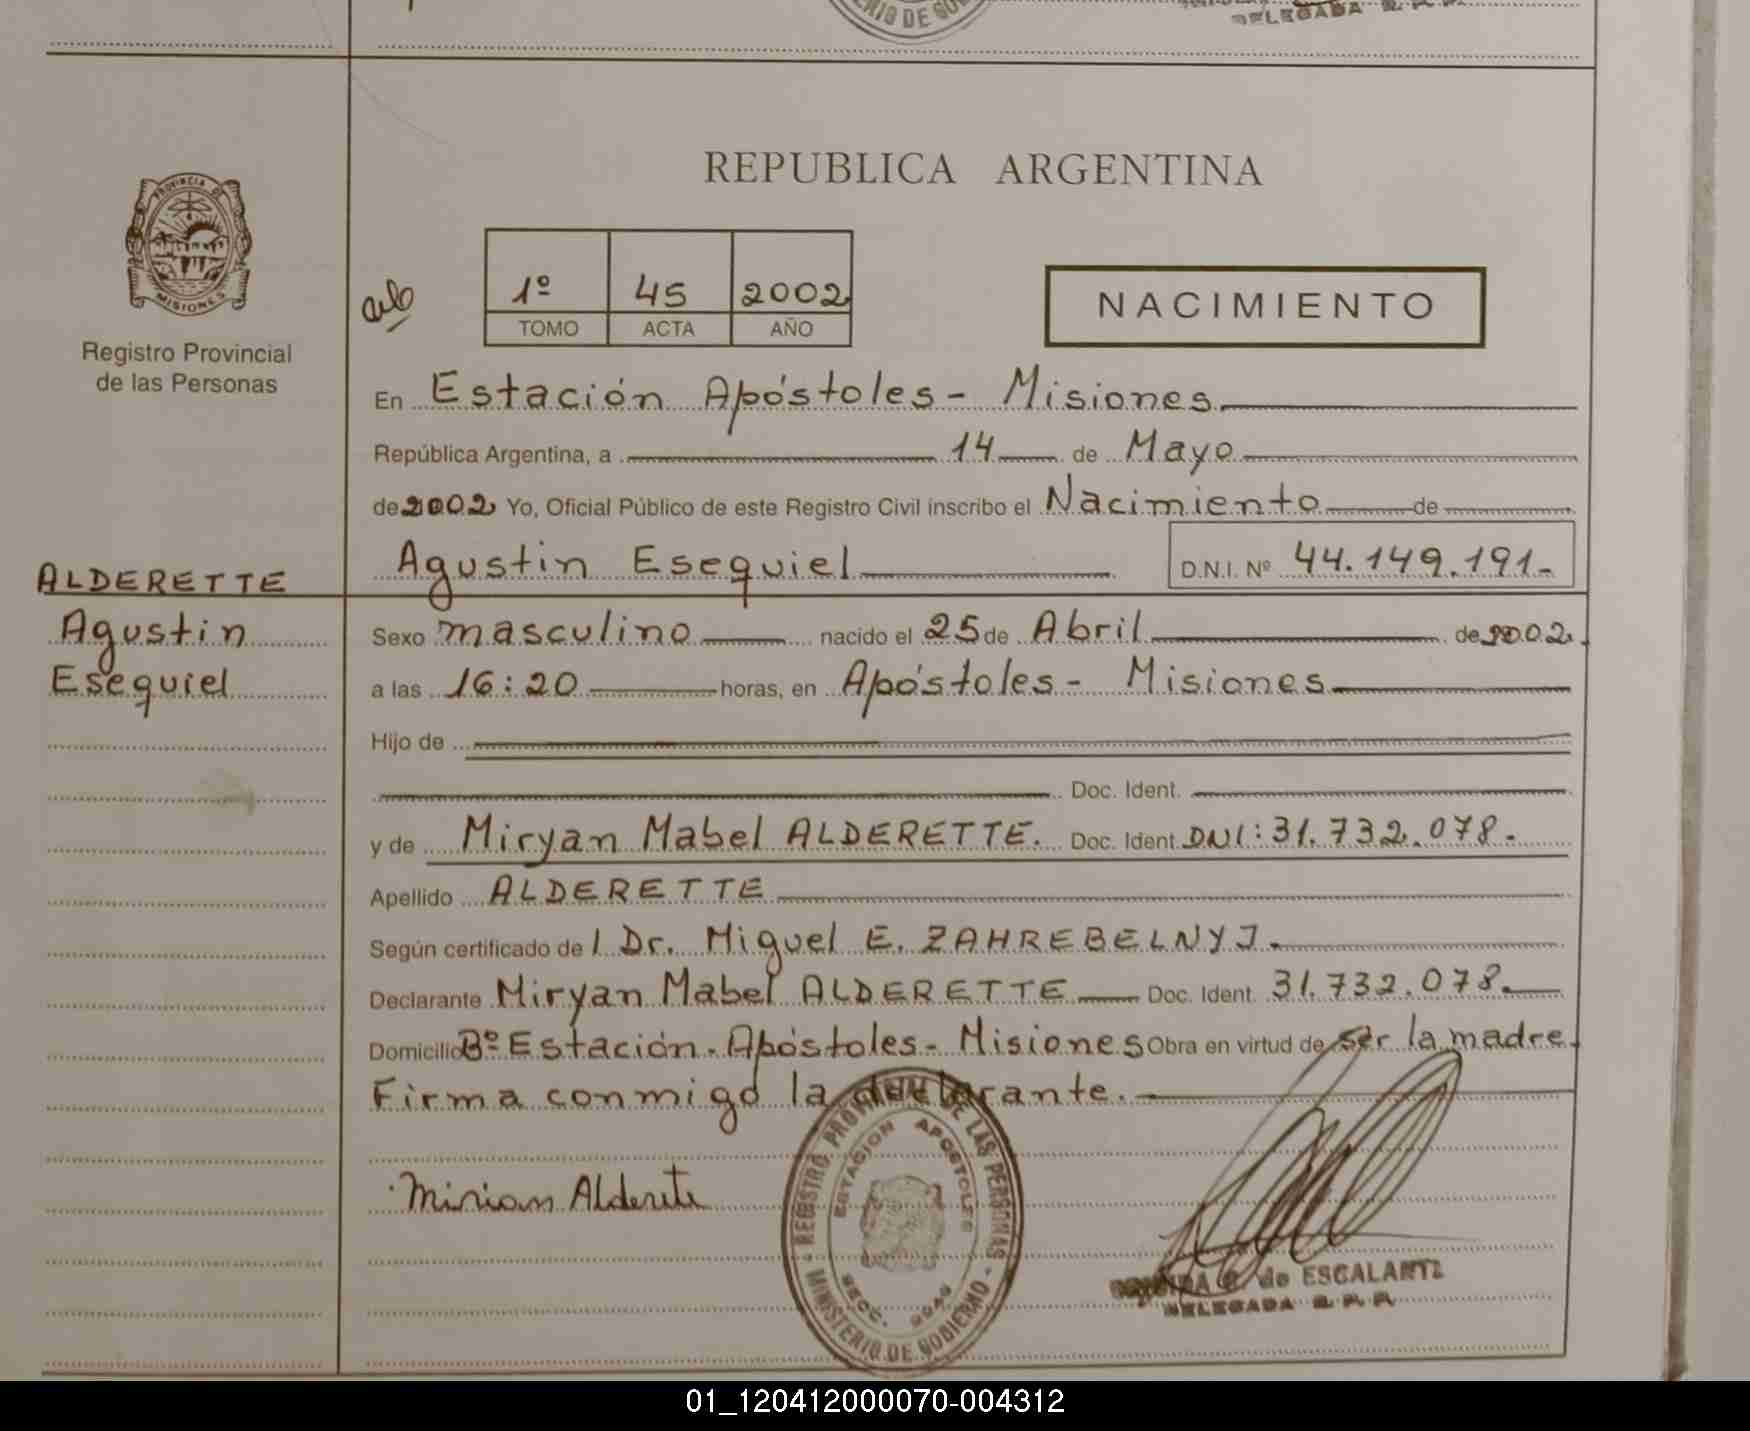 DELEGADA R. P. P.
REPUBLICA ARGENTINA
PROVINCIA D
MISIONES
Registro Provincial
de las Personas
1º 45 2002
TOMO ACTA AÑO
NACIMIENTO
En Estación Apóstoles - Misiones
República Argentina, a 14 de Mayo
de 2002 Yo, Oficial Público de este Registro Civil inscribo el Nacimiento de
Agustin Esequiel D.N.I. Nº 44.149.191.-
ALDERETTE
Agustin
Esequiel
Sexo masculino nacido el 25 de Abril de 2002.
a las 16:20 horas, en Apóstoles - Misiones
Hijo de
Doc. Ident.
y de Miryan Mabel ALDERETTE. Doc. Ident. DNI: 31.732.078.-
Apellido ALDERETTE
Según certificado de l Dr. Miguel E. ZAHREBELNYJ.
Declarante Miryan Mabel ALDERETTE Doc. Ident. 31.732.078.
Domicilio Bº Estación. Apóstoles - Misiones Obra en virtud de ser la madre.
Firma conmigo la declarante.
Mirian Alderete
REGISTRO PROVINCIAL DE LAS PERSONAS
ESTACION APOSTOLES
SECC.
MINISTERIO DE GOBIERNO
de ESCALANTE
DELEGADA R. P. P.
01_120412000070-004312